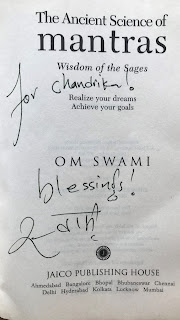 The Ancient Science of
mantras
Wisdom of the Sages
for Chandrika!
Realize your dreams
Achieve your goals
OM SWAMI
blessings!
JAICO PUBLISHING HOUSE
Ahmedabad Bangalore Bhopal Bhubaneswar Chennai
Delhi Hyderabad Kolkata Lucknow Mumbai